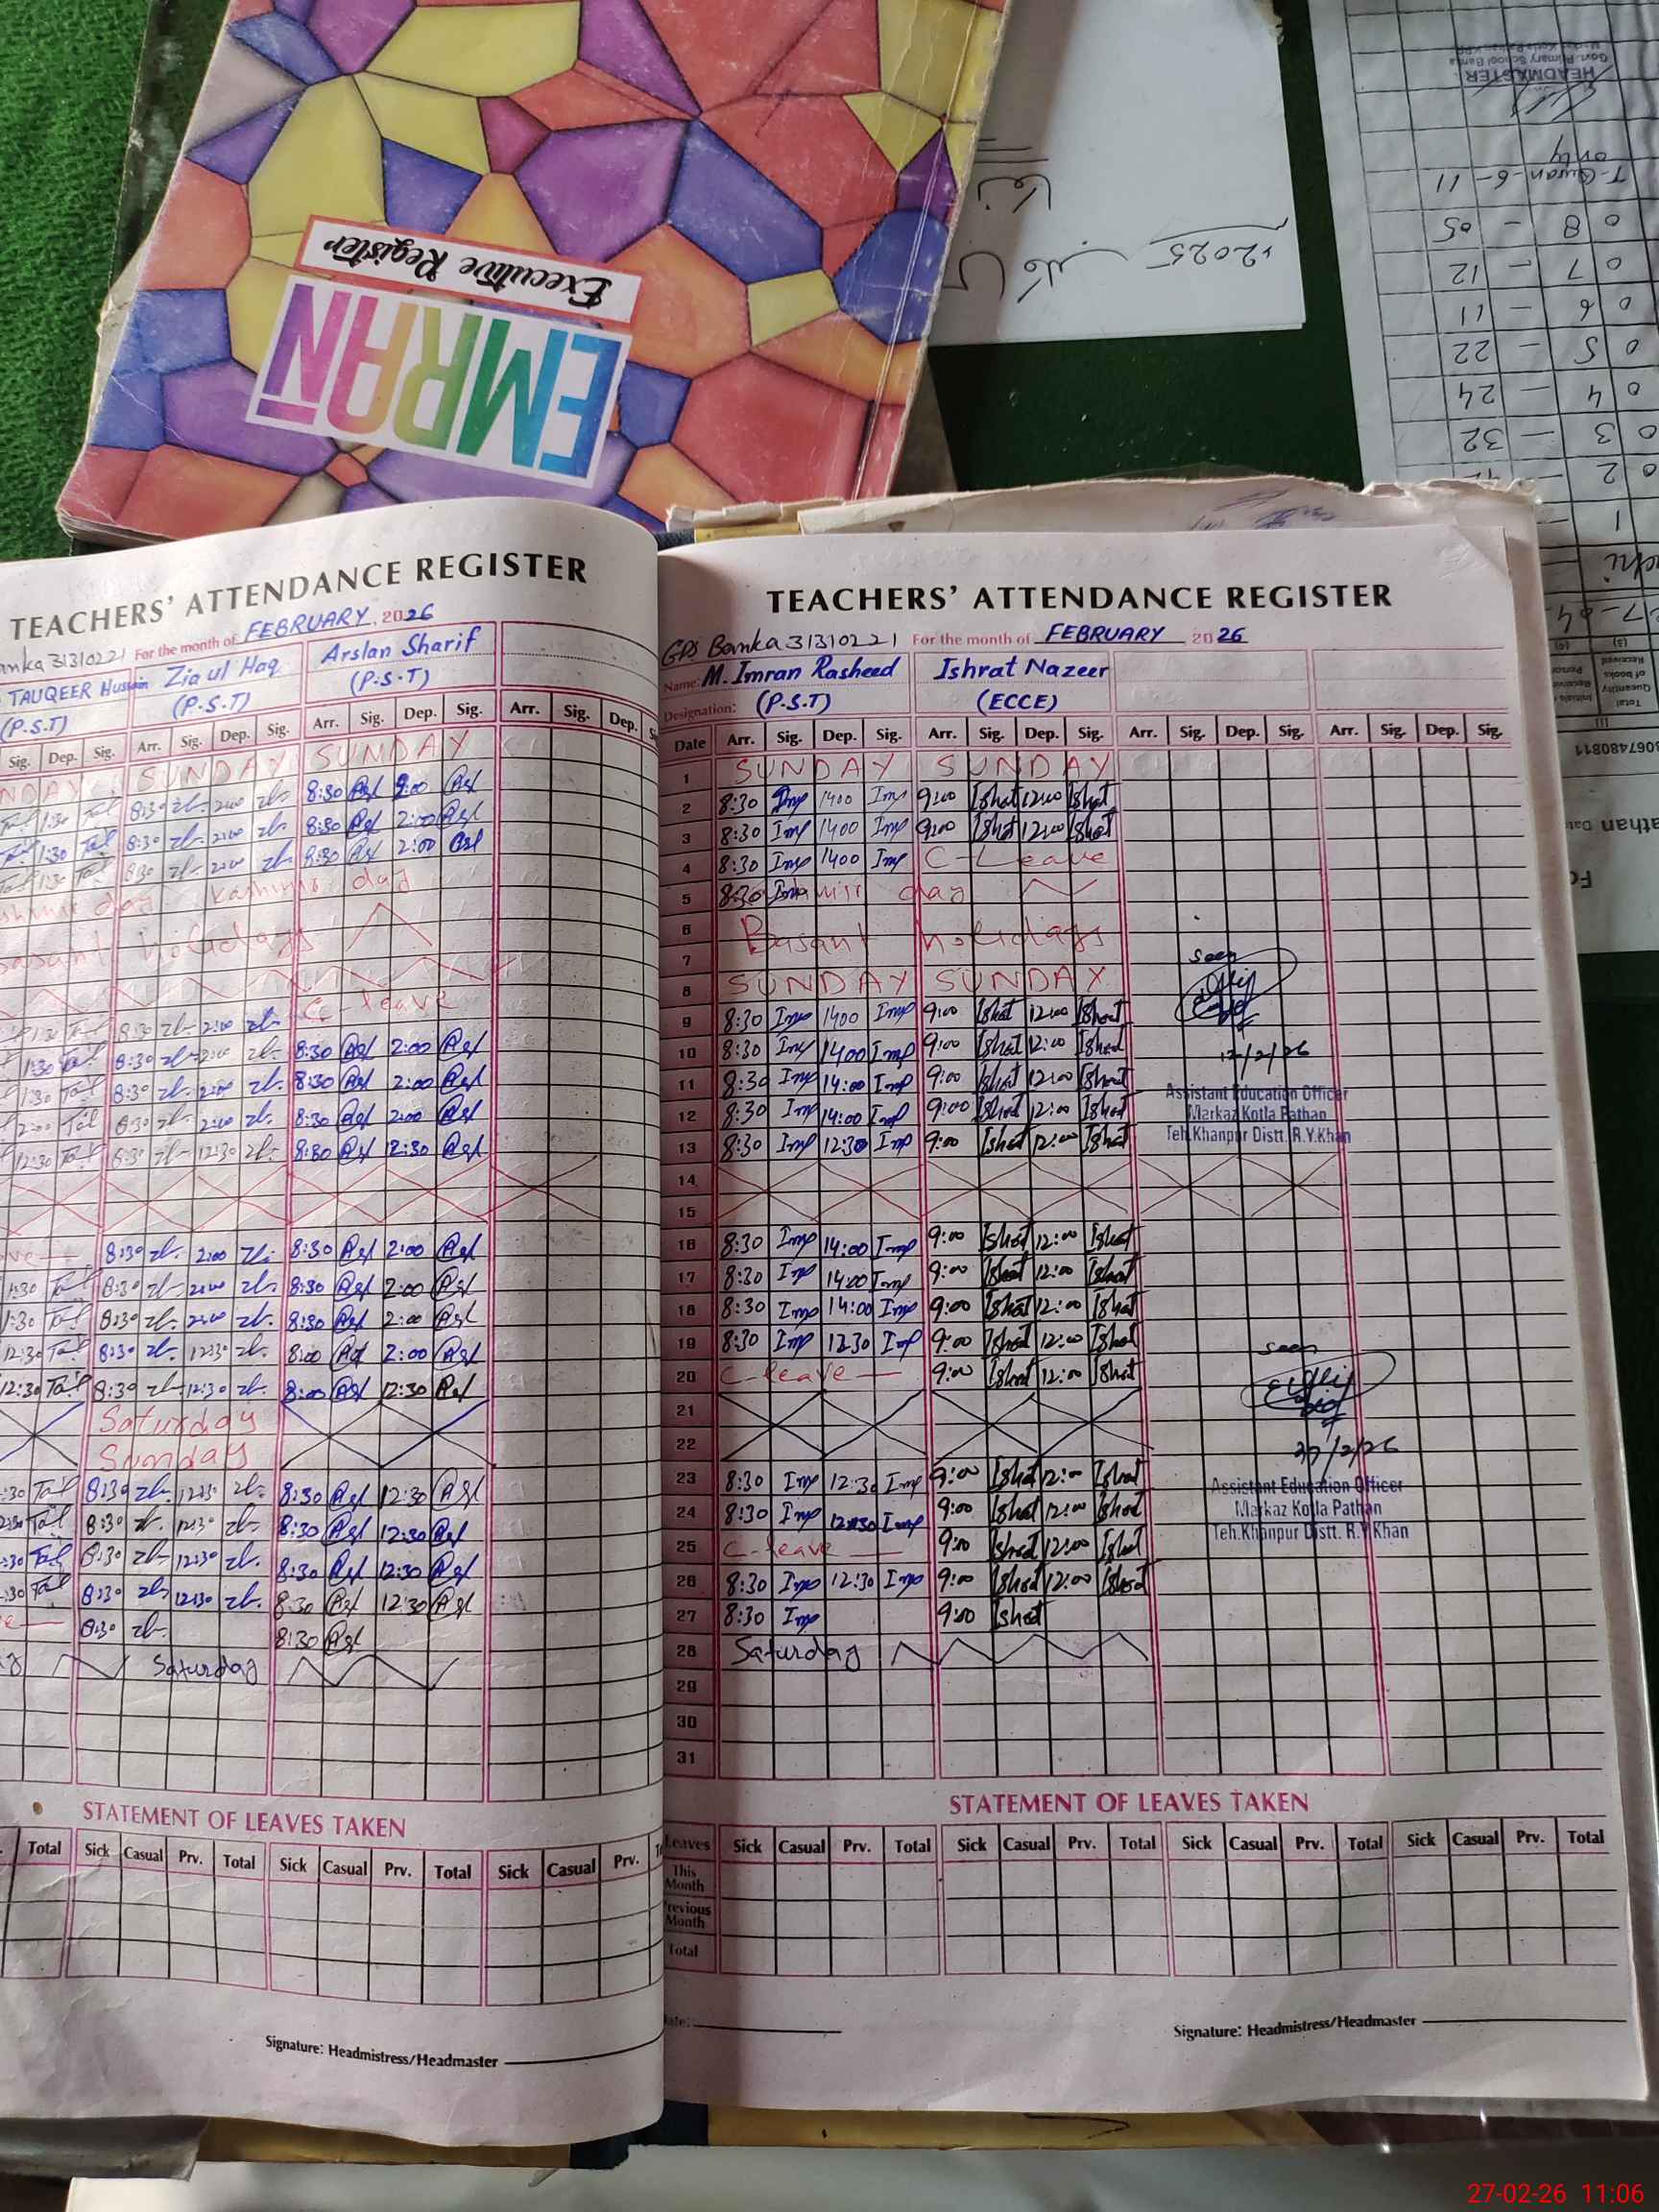 EMRAN
Executive Register
2025
HEADMASTER
Govt. Primary School Banka
T-Quran-6-11
only
0 8 - 05
0 7 - 12
0 6 - 11
0 5 - 22
0 4 - 24
0 3 - 32
0 2
1
Total Quantity of books Received
TEACHERS' ATTENDANCE REGISTER
anka 31310221 For the month of FEBRUARY, 2026
TAUQEER Hussain Zia ul Haq Arslan Sharif
(P.S.T) (P.S.T) (P.S.T)
Sig. Dep. Sig. Arr. Sig. Dep. Sig. Arr. Sig. Dep. Sig. Arr. Sig. Dep.
NDAY SUNDAY SUNDAY
1:30 Tal 8:30 zh. 2:00 zh 8:30 Asl 2:00 Asl
1:30 Tal 8:30 zh. 2:00 zh 8:30 Asl 2:00 Asl
1:30 Tal 8:30 zh. 2:00 zh 8:30 Asl 2:00 Asl
shmir day Kashmir day
asant holidays
1:30 Tal 8:30 zh 2:00 zh. C-leave
1:30 Tal 8:30 zh 2:00 zh. 8:30 Asl 2:00 Asl
1:30 Tal 8:30 zh. 2:00 zh. 8:30 Asl 2:00 Asl
2:00 Tal 8:30 zh. 2:00 zh. 8:30 Asl 2:00 Asl
12:30 Tal 8:30 zh 12:30 zh. 8:30 Asl 12:30 Asl
ve 8:30 zh. 2:00 zh. 8:30 Asl 2:00 Asl
1:30 Tal 8:30 zh. 2:00 zh 8:30 Asl 2:00 Asl
1:30 Tal 8:30 zh. 2:00 zh. 8:30 Asl 2:00 Asl
12:30 Tal 8:30 zh. 12:30 zh. 8:00 Asl 2:00 Asl
12:30 Tal 8:30 zh 12:30 zh. 8:00 Asl 12:30 Asl
Saturday
Sunday
:30 Tal 8:30 zh. 12:30 zh. 8:30 Asl 12:30 Asl
12:30 Tal 8:30 zh. 12:30 zh. 8:30 Asl 12:30 Asl
:30 Tal 8:30 zh 12:30 zh. 8:30 Asl 12:30 Asl
:30 Tal 8:30 zh 12:30 zh. 8:30 Asl 12:30 Asl
e 8:30 zh. 8:30 Asl
Saturday
STATEMENT OF LEAVES TAKEN
Total Sick Casual Prv. Total Sick Casual Prv. Total Sick Casual Prv.
Signature: Headmistress/Headmaster
TEACHERS' ATTENDANCE REGISTER
GPS Banka 31310221 For the month of FEBRUARY 2026
Name: M. Imran Rasheed Ishrat Nazeer
Designation: (P.S.T) (ECCE)
Date Arr. Sig. Dep. Sig. Arr. Sig. Dep. Sig. Arr. Sig. Dep. Sig. Arr. Sig. Dep. Sig.
1 SUNDAY SUNDAY
2 8:30 Imp 1400 Imp 9:00 Ishrat 12:00 Ishrat
3 8:30 Imp 1400 Imp 9:00 Ishrat 12:00 Ishrat
4 8:30 Imp 1400 Imp C-Leave
5 8:30 day
6 Basant holidays
7
8 SUNDAY SUNDAY
9 8:30 Imp 1400 Imp 9:00 Ishrat 12:00 Ishrat
10 8:30 Imp 1400 Imp 9:00 Ishrat 12:00 Ishrat
11 8:30 Imp 14:00 Imp 9:00 Ishrat 12:00 Ishrat
12 8:30 Imp 14:00 Imp 9:00 Ishrat 12:00 Ishrat
13 8:30 Imp 12:30 Imp 9:00 Ishrat 12:00 Ishrat
14
15
16 8:30 Imp 14:00 Imp 9:00 Ishrat 12:00 Ishrat
17 8:30 Imp 14:00 Imp 9:00 Ishrat 12:00 Ishrat
18 8:30 Imp 14:00 Imp 9:00 Ishrat 12:00 Ishrat
19 8:30 Imp 1230 Imp 9:00 Ishrat 12:00 Ishrat
20 C-leave 9:00 Ishrat 12:00 Ishrat
21
22
23 8:30 Imp 12:30 Imp 9:00 Ishrat 12:00 Ishrat
24 8:30 Imp 12:30 Imp 9:00 Ishrat 12:00 Ishrat
25 C-leave 9:00 Ishrat 12:00 Ishrat
26 8:30 Imp 12:30 Imp 9:00 Ishrat 12:00 Ishrat
27 8:30 Imp 9:00 Ishrat
28 Saturday
29
30
31
seen
12/2/26
Assistant Education Officer
Markaz Kotla Pathan
Teh.Khanpur Distt. R.Y.Khan
seen
27/2/26
Assistant Education Officer
Markaz Kotla Pathan
Teh.Khanpur Distt. R.Y.Khan
STATEMENT OF LEAVES TAKEN
Leaves Sick Casual Prv. Total Sick Casual Prv. Total Sick Casual Prv. Total Sick Casual Prv. Total
This Month
Previous Month
Total
Date:
Signature: Headmistress/Headmaster
27-02-26 11:06